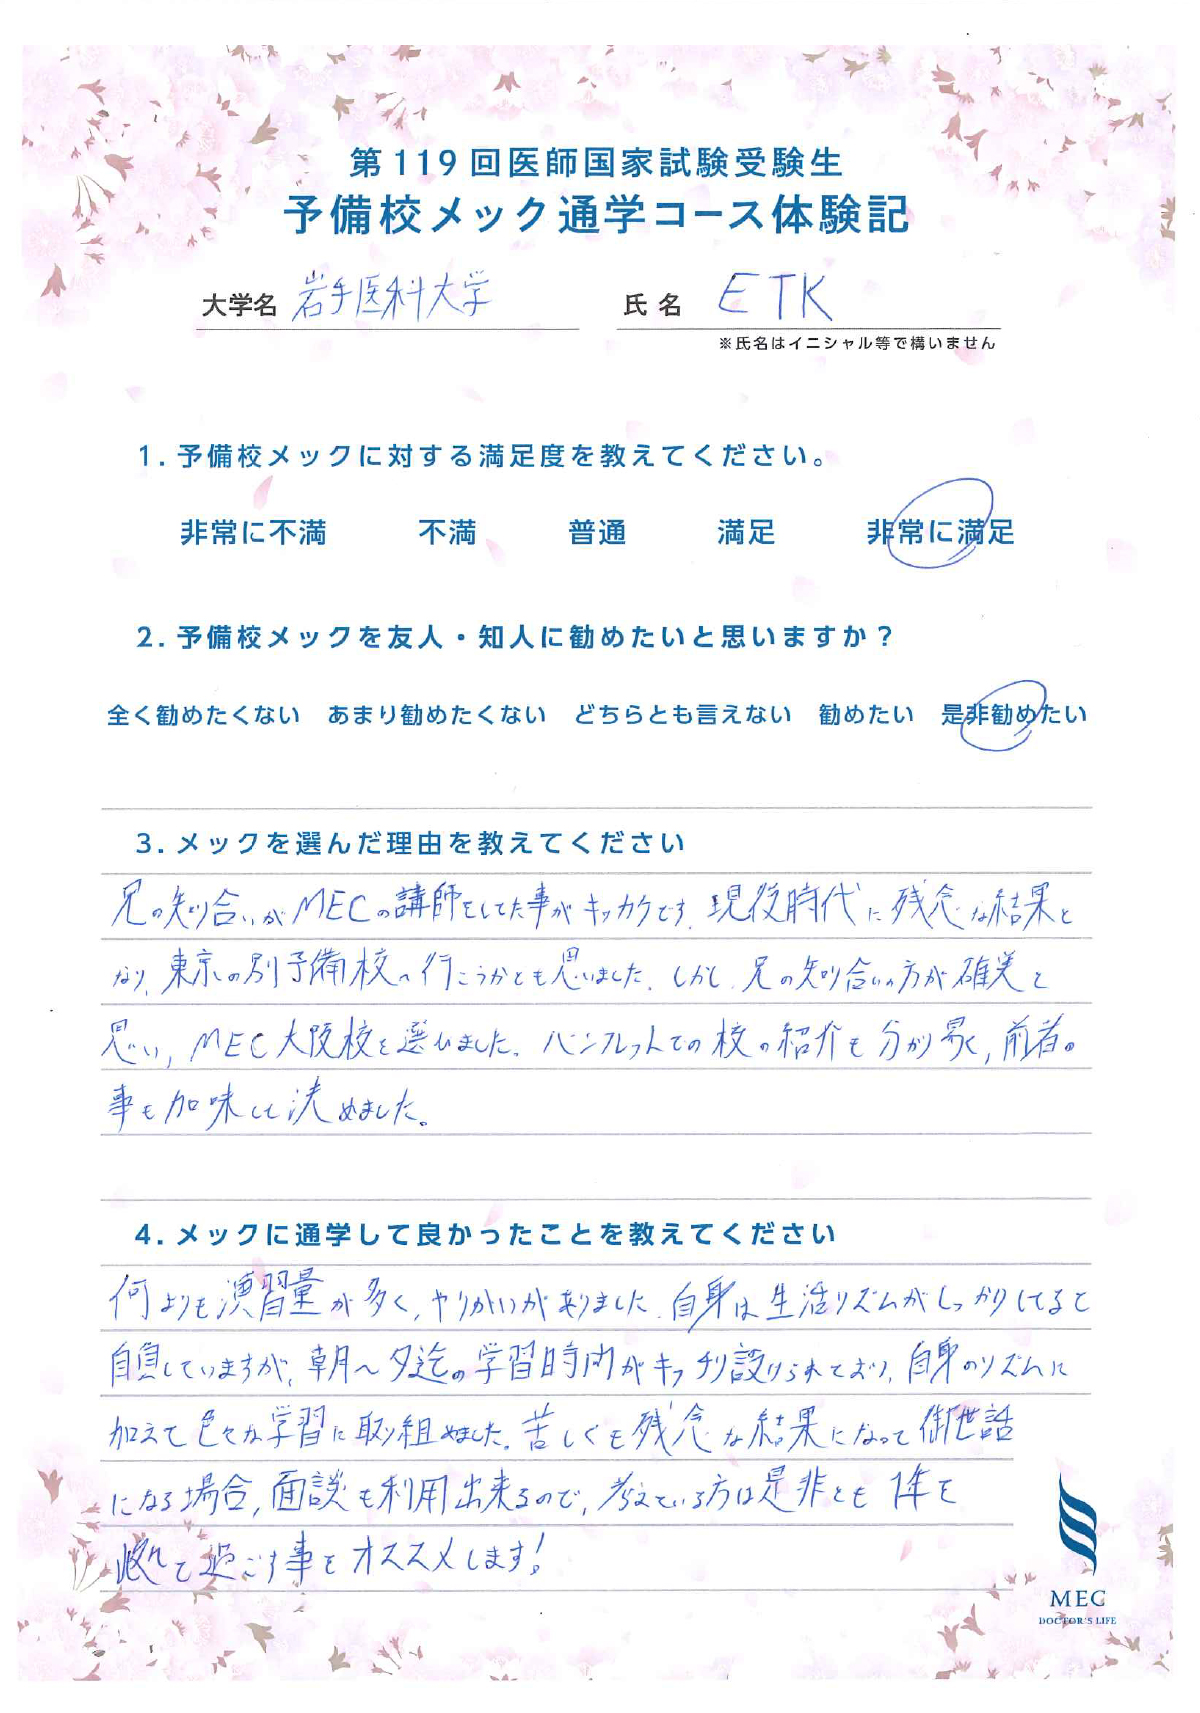 第119回医師国家試験受験生
予備校メック通学コース体験記
大学名 岩手医科大学 氏名 ETK
※氏名はイニシャル等で構いません
1.予備校メックに対する満足度を教えてください。
非常に不満 不満 普通 満足 非常に満足
2.予備校メックを友人・知人に勧めたいと思いますか？
全く勧めたくない あまり勧めたくない どちらとも言えない 勧めたい 是非勧めたい
3.メックを選んだ理由を教えてください
兄の知り合いがMECの講師をしてた事がキッカケです。現役時代に残念な結果と
なり、東京の別予備校へ行こうかとも思いました。しかし、兄の知り合いの方が確実と
思い、MEC大阪校を選びました。パンフレットでの校の紹介も分かり易く、前者の
事も加味して決めました。
4.メックに通学して良かったことを教えてください
何よりも演習量が多く、ヤリがいがありました。自身は生活リズムがしっかりしてると
自負していますが、朝〜夕迄の学習時間がキッチリ設けられており、自身のリズムに
加えて色々な学習に取り組めました。苦しくも残念な結果になって御世話
になる場合、面談も利用出来るので、考えている方は是非とも1年を
て過ごす事をオススメします!
MEC
DOCTOR'S LIFE